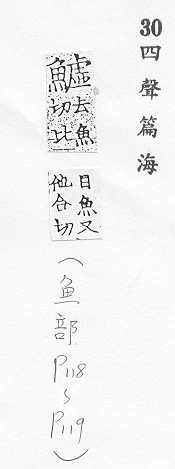 30四聲篇海
鱋
去魚
切比
目魚又
他合切
(魚部P118~P119)